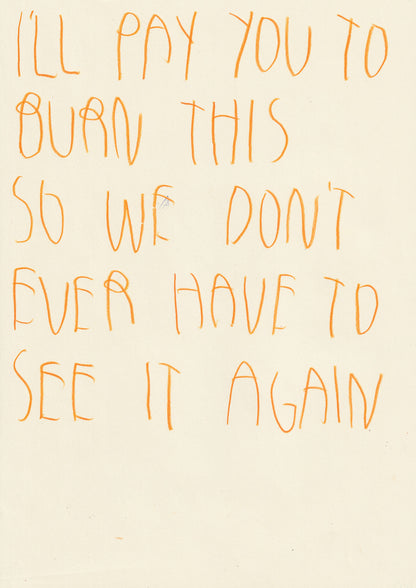 I'LL PAY YOU TO
BURN THIS
SO WE DON'T
EVER HAVE TO
SEE IT AGAIN